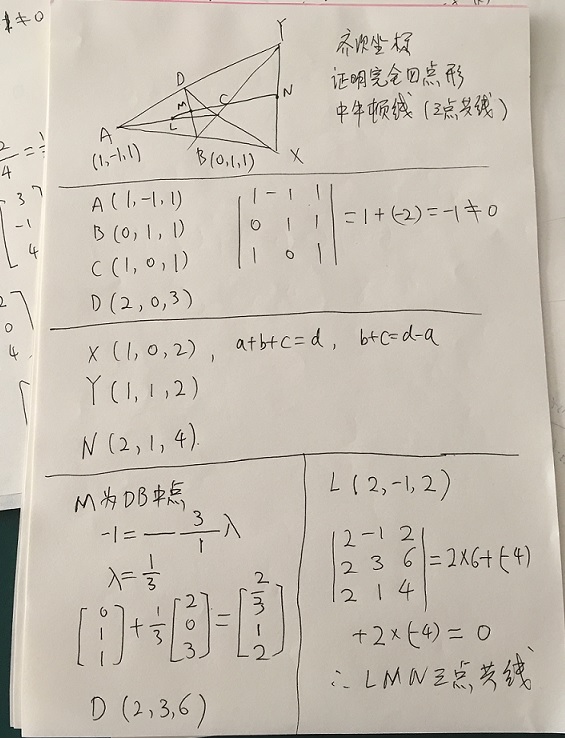 ≠0
Y
D
M
C
N
L
A
(1,-1,1)
B(0,1,1)
X
齐次坐标
证明完全四点形
中牛顿线(三点共线)
2
4
3
-1
4
2
0
4
A(1,-1,1)
B(0,1,1)
C(1,0,1)
D(2,0,3)
1 -1 1
0 1 1
1 0 1
=1+(-2)=-1≠0
X(1,0,2), a+b+c=d, b+c=d-a
Y(1,1,2)
N(2,1,4).
M为DB中点
-1=-3/1 λ
λ=1/3
[0 1 1]+1/3[2 0 3]=[2/3 1 2]
D(2,3,6)
L(2,-1,2)
2 -1 2
2 3 6
2 1 4
=2×6+(-4)
+2×(-4)=0
∴LMN三点共线